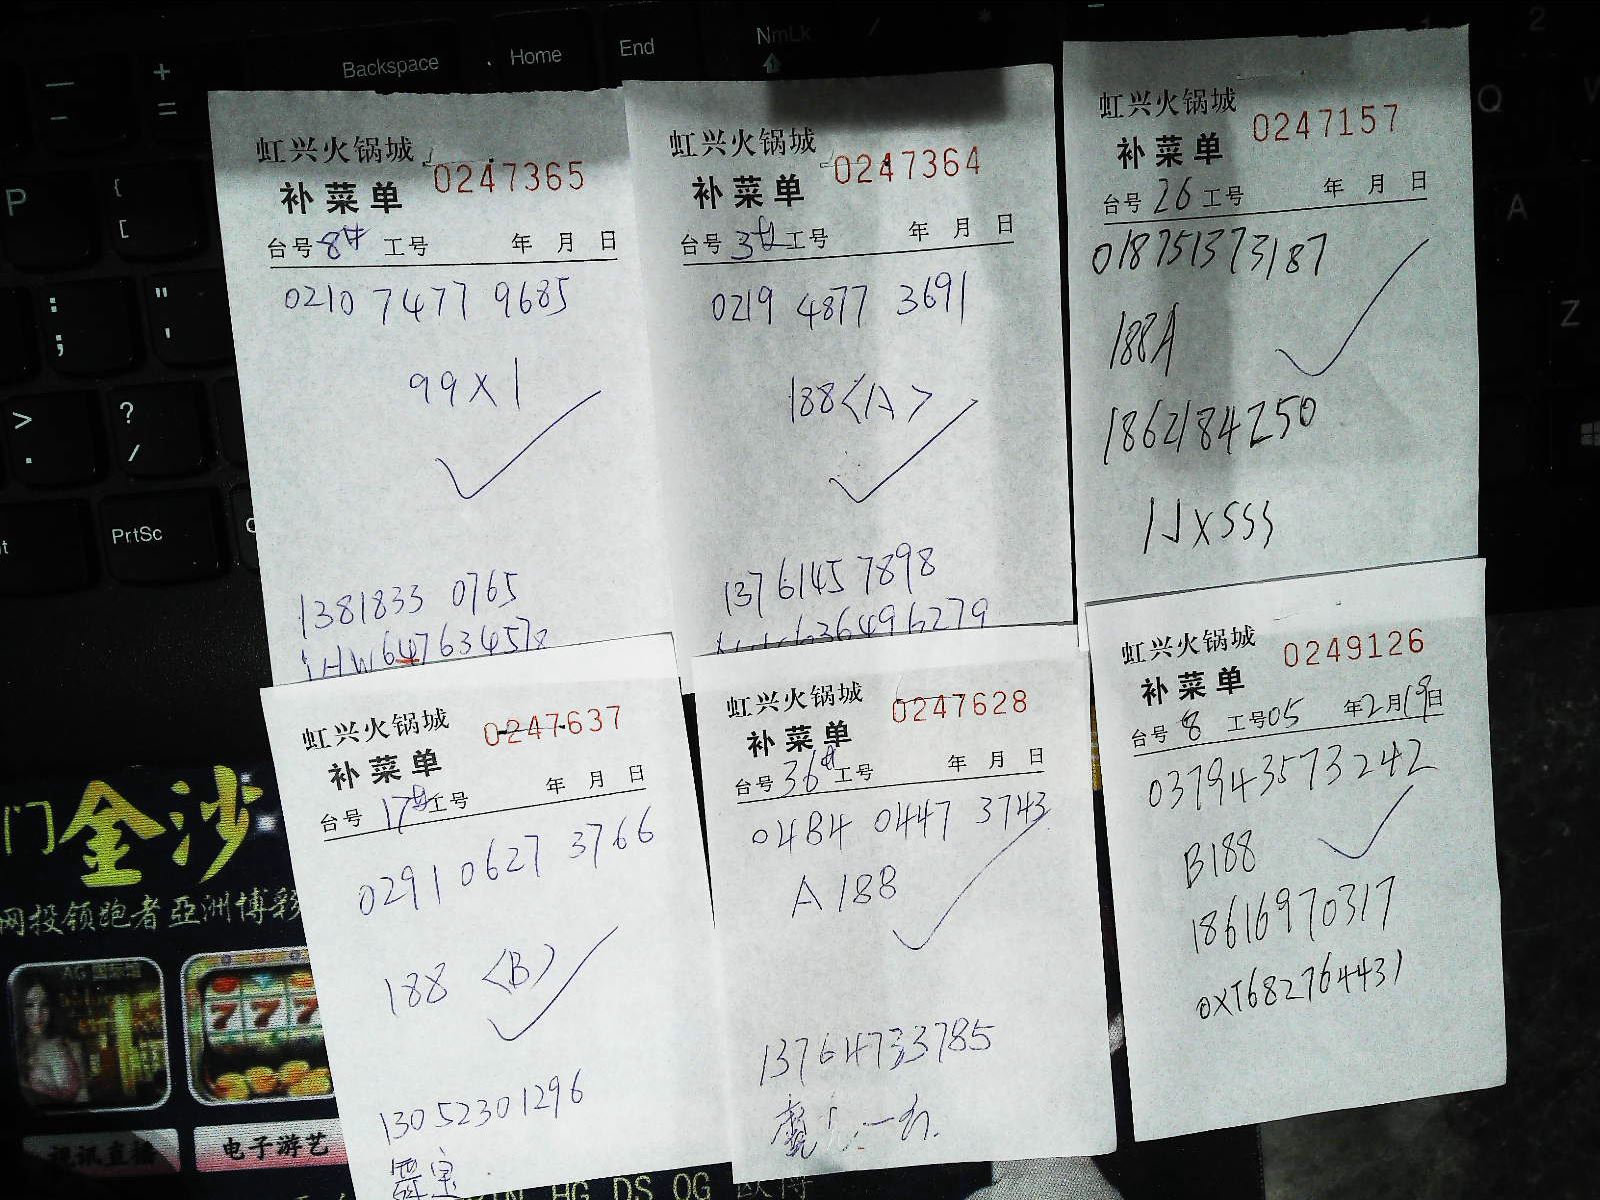 Backspace
Home
End
NmLk
PrtSc
虹兴火锅城
补菜单 0247365
台号 8# 工号 年 月 日
0210 7477 9685
99X1
1381833 0765
虹兴火锅城
补菜单 0247364
台号 3# 工号 年 月 日
0219 4877 3691
188<A>
1376145 7898
虹兴火锅城
补菜单 0247157
台号 26 工号 年 月 日
018751373187
188A
1862184250
虹兴火锅城
补菜单 0247637
台号 17# 工号 年 月 日
0291 0627 3766
188 <B>
13052301296
虹兴火锅城
补菜单 0247628
台号 36# 工号 年 月 日
0484 0447 3743
A 188
13764733785
虹兴火锅城
补菜单 0249126
台号 8 工号 05 年 2 月 19 日
037943573242
B188
18616970317
0XT682764431
门金沙
网投领跑者 亞洲博彩
AG 国际馆
777
视讯直播
电子游艺
HG DS OG 欧博